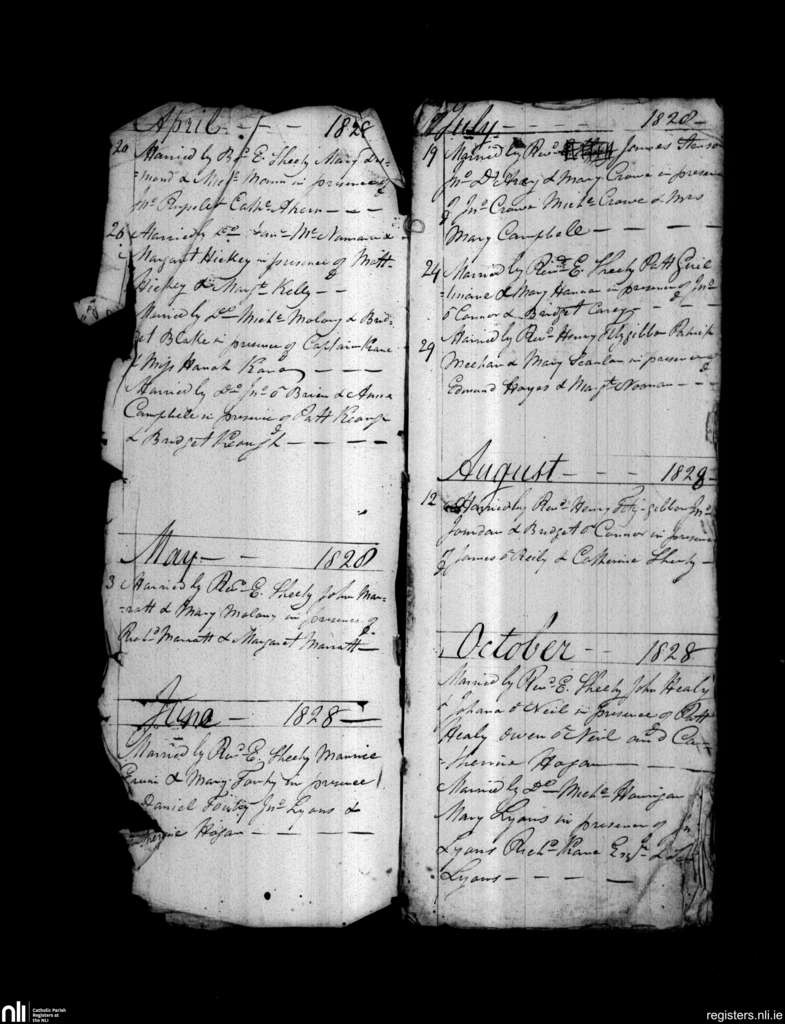 April 1828
20 Married by Revd. E. Sheehy Mary
& Miss Mann in presence of
Jno. & Cathe. Ahern
26 Married by Do. McNamara &
Margaret Hickey in presence of Matt
Hickey & Margt. Kelly
Married by Do. Michl. Molony & Brid-
get Blake in presence of Captain Kane
& Miss Hanah Kane
Married by Do. Jno. O Brien & Anne
Campbell in presence of Patt Keough
& Bridget Keough
May 1828
3 Married by Revd. E. Sheehy John Mar-
=ratt & Mary Molony in presence of
Richd. Marratt & Margaret Marratt
June - 1828
Married by Revd. E. Sheehy Maurice
& Mary in presence
Daniel Jno. Lyons &
Hogan
July 1828
19 Married by Revd. James
Jno. & Mary Crowe in presence
of Jno. Crowe Michl. Crowe & Mrs
Mary Campbell
24 Married by Revd. E. Sheehy Patt
& Mary Hannan in presence of Jno.
O Connor & Bridget Carey
29 Married by Revd. Henry Fitzgibbon Patrick
Meehan & Mary Scanlan in presence of
Edmund Hayes & Margt. Noonan
August - - - 1828
12 Married by Revd. Henry Fitzgibbon Jno.
Jourdan & Bridget O Connor in presence
of James O Reily & Catherine Sheehy
October - - 1828
Married by Revd. E. Sheehy John Healy
& Johana O Neil in presence of Patt
Healy Owen O Neil and Ca-
=therine Hogan
Married by Do. Michl. Hannigan
Mary Lyons in presence of Jn
Lyons Richd. Kane Esqr. &
Lyons
nli
Catholic Parish
Registers at
the NLI
registers.nli.ie